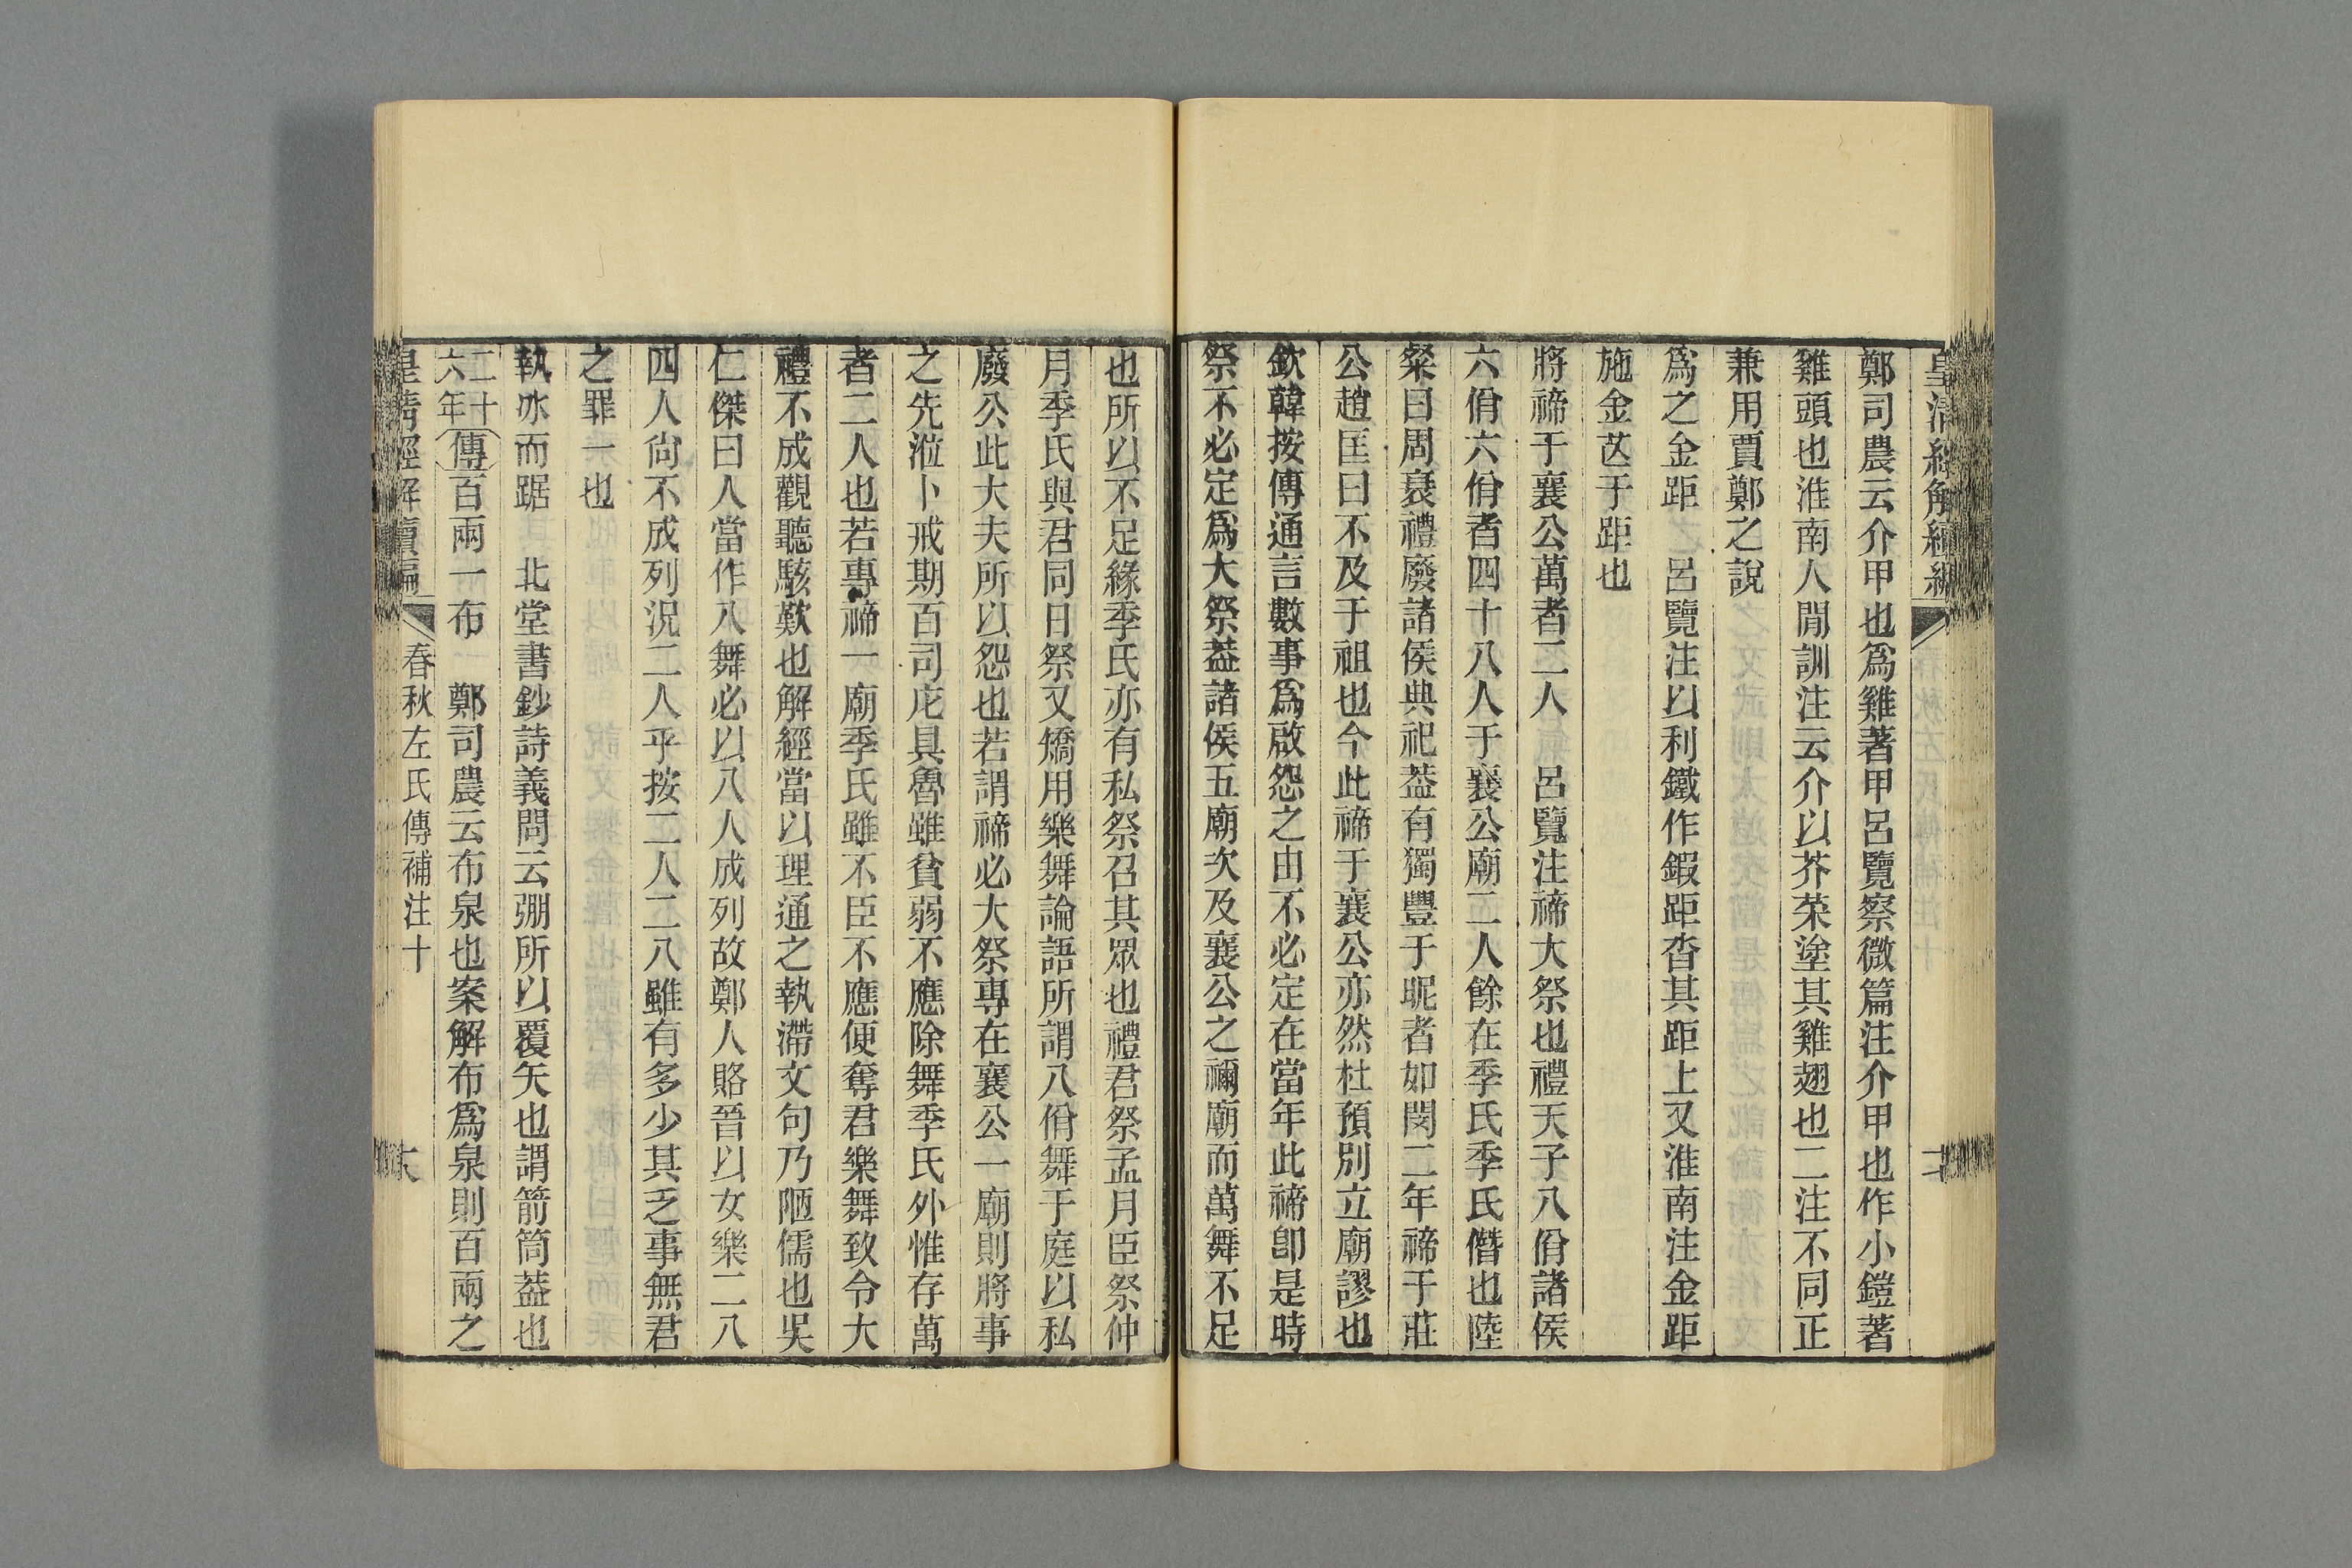 皇清經解續編
鄭司農云介甲也爲雞著甲呂覽察微篇注介甲也作小鎧著
雞頭也淮南人閒訓注云介以芥菜塗其雞翅也二注不同正
兼用賈鄭之說
爲之金距　呂覽注以利鐵作鍜距沓其距上又淮南注金距
施金芒于距也
將禘于襄公萬者二人　呂覽注禘大祭也禮天子八佾諸侯
六佾六佾者四十八人于襄公廟二人餘在季氏季氏僭也陸
粲曰周衰禮廢諸侯典祀葢有獨豐于昵者如閔二年禘于莊
公趙匡曰不及于祖也今此禘于襄公亦然杜預別立廟謬也
欽韓按傳通言數事爲啟怨之由不必定在當年此禘卽是時
祭不必定爲大祭葢諸侯五廟次及襄公之禰廟而萬舞不足
也所以不足緣季氏亦有私祭召其眾也禮君祭孟月臣祭仲
月季氏與君同日祭又矯用樂舞論語所謂八佾舞于庭以私
廢公此大夫所以怨也若謂禘必大祭專在襄公一廟則將事
之先涖卜戒期百司庀具魯雖貧弱不應除舞季氏外惟存萬
者二人也若專禘一廟季氏雖不臣不應便奪君樂舞致令大
禮不成觀聽駭歎也解經當以理通之執滯文句乃陋儒也吳
仁傑曰人當作八舞必以八人成列故鄭人賂晉以女樂二八
四人尙不成列況二人乎按二人二八雖有多少其乏事無君
之罪一也
執冰而踞　北堂書鈔詩義問云弸所以覆矢也謂箭筒葢也
二十六年傳百兩一布　鄭司農云布泉也案解布爲泉則百兩之
皇清經解續編　春秋左氏傳補注十